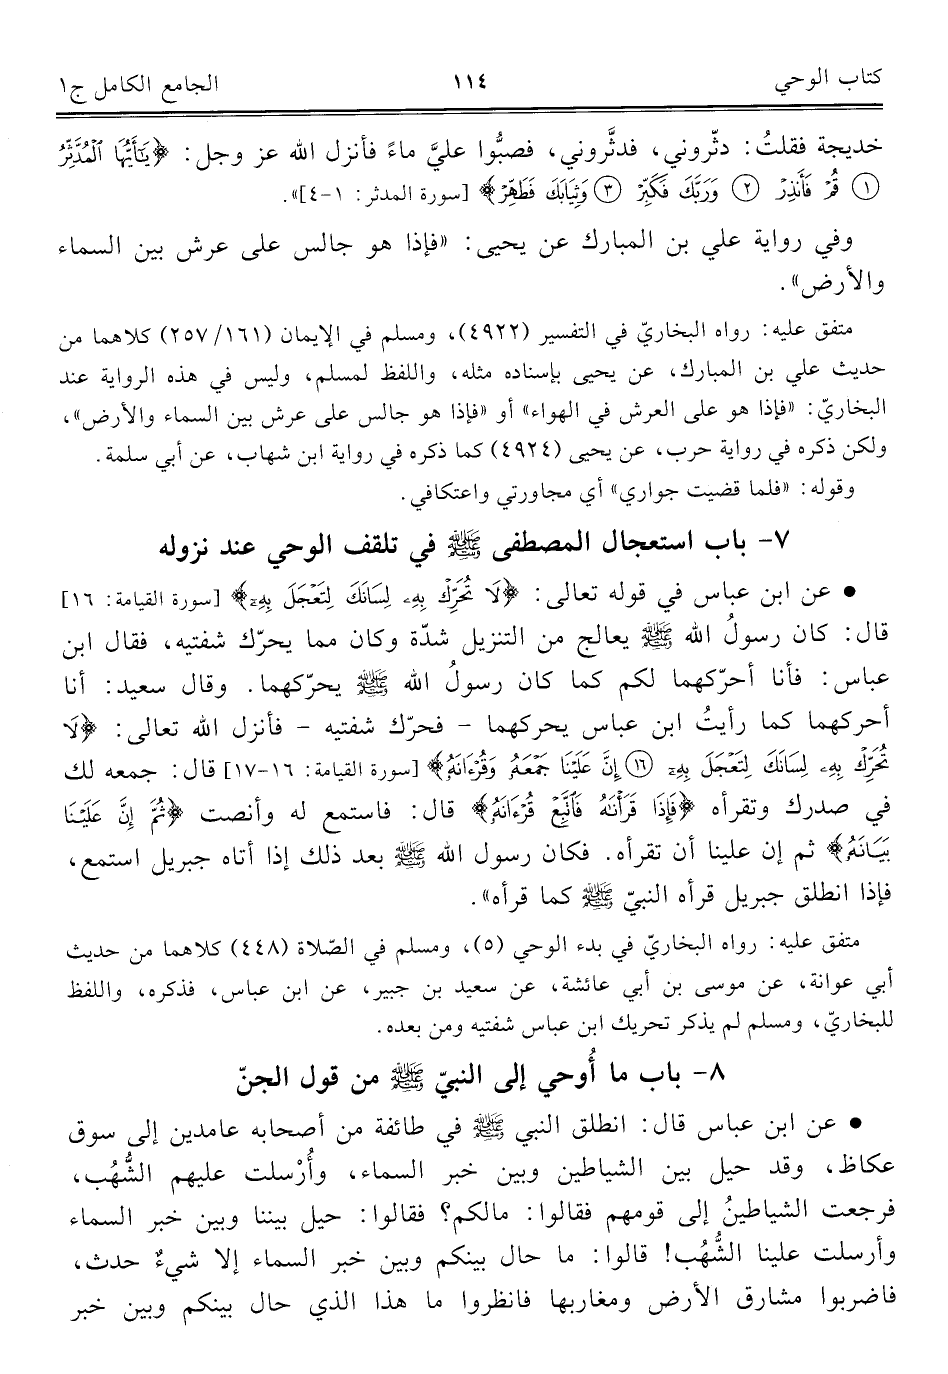 كتاب الوحي ١١٤ الجامع الكامل ج١
خديجة فقلتُ: دثّروني، فدثَّروني، فصبُّوا عليَّ ماءً فأنزل الله عز وجل: ﴿يَٰٓأَيُّهَا ٱلْمُدَّثِّرُ
١ قُمْ فَأَنذِرْ ٢ وَرَبَّكَ فَكَبِّرْ ٣ وَثِيَابَكَ فَطَهِّرْ﴾ [سورة المدثر: ١-٤]».
وفي رواية علي بن المبارك عن يحيى: «فإذا هو جالس على عرش بين السماء
والأرض».
متفق عليه: رواه البخاريّ في التفسير (٤٩٢٢)، ومسلم في الإيمان (١٦١/ ٢٥٧) كلاهما من
حديث علي بن المبارك، عن يحيى بإسناده مثله، واللفظ لمسلم، وليس في هذه الرواية عند
البخاريّ: «فإذا هو على العرش في الهواء» أو «فإذا هو جالس على عرش بين السماء والأرض»،
ولكن ذكره في رواية حرب، عن يحيى (٤٩٢٤) كما ذكره في رواية ابن شهاب، عن أبي سلمة.
وقوله: «فلما قضيت جواري» أي مجاورتي واعتكافي.
٧- باب استعجال المصطفى ﷺ في تلقف الوحي عند نزوله
• عن ابن عباس في قوله تعالى: ﴿لَا تُحَرِّكْ بِهِۦ لِسَانَكَ لِتَعْجَلَ بِهِۦٓ﴾ [سورة القيامة: ١٦]
قال: كان رسولُ الله ﷺ يعالج من التنزيل شدّة وكان مما يحرّك شفتيه، فقال ابن
عباس: فأنا أحرّكهما لكم كما كان رسولُ الله ﷺ يحرّكهما. وقال سعيد: أنا
أحركهما كما رأيتُ ابن عباس يحركهما - فحرّك شفتيه - فأنزل الله تعالى: ﴿لَا
تُحَرِّكْ بِهِۦ لِسَانَكَ لِتَعْجَلَ بِهِۦٓ ١٦ إِنَّ عَلَيْنَا جَمْعَهُۥ وَقُرْءَانَهُۥ﴾ [سورة القيامة: ١٦-١٧] قال: جمعه لك
في صدرك وتقرأه ﴿فَإِذَا قَرَأْنَٰهُ فَٱتَّبِعْ قُرْءَانَهُۥ﴾ قال: فاستمع له وأنصت ﴿ثُمَّ إِنَّ عَلَيْنَا
بَيَانَهُۥ﴾ ثم إن علينا أن تقرأه. فكان رسول الله ﷺ بعد ذلك إذا أتاه جبريل استمع،
فإذا انطلق جبريل قرأه النبيّ ﷺ كما قرأه».
متفق عليه: رواه البخاريّ في بدء الوحي (٥)، ومسلم في الصّلاة (٤٤٨) كلاهما من حديث
أبي عوانة، عن موسى بن أبي عائشة، عن سعيد بن جبير، عن ابن عباس، فذكره، واللفظ
للبخاريّ، ومسلم لم يذكر تحريك ابن عباس شفتيه ومن بعده.
٨- باب ما أُوحي إلى النبيّ ﷺ من قول الجنّ
• عن ابن عباس قال: انطلق النبي ﷺ في طائفة من أصحابه عامدين إلى سوق
عكاظ، وقد حيل بين الشياطين وبين خبر السماء، وأُرْسلت عليهم الشُّهُب،
فرجعت الشياطينُ إلى قومهم فقالوا: مالكم؟ فقالوا: حيل بيننا وبين خبر السماء
وأرسلت علينا الشُّهُب! قالوا: ما حال بينكم وبين خبر السماء إلا شيءٌ حدث،
فاضربوا مشارق الأرض ومغاربها فانظروا ما هذا الذي حال بينكم وبين خبر